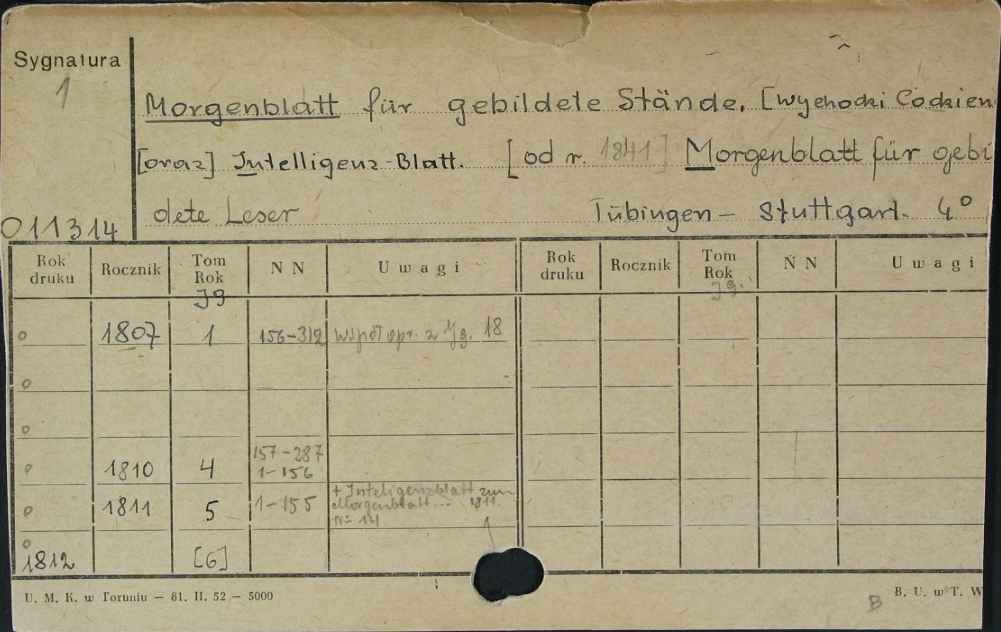 Sygnatura
1
Morgenblatt für gebildete Stände. [Wychodzi Codzien
[oraz] Intelligenz-Blatt. [od r. 1841] Morgenblatt für gebi
dete Leser Tübingen – Stuttgart. 4°
011314
Rok druku Rocznik Tom Rok Jg N N Uwagi Rok druku Rocznik Tom Rok Jg. N N Uwagi
1807 1 156-312 współopr. z Jg. 18
1810 4 157-287
1-156
1811 5 1-155 + Inteligenzblatt zum
Morgenblatt... 1811.
N= 14
1812 [6]
U. M. K. w Toruniu — 61. II. 52 — 5000
B B. U. w T. W